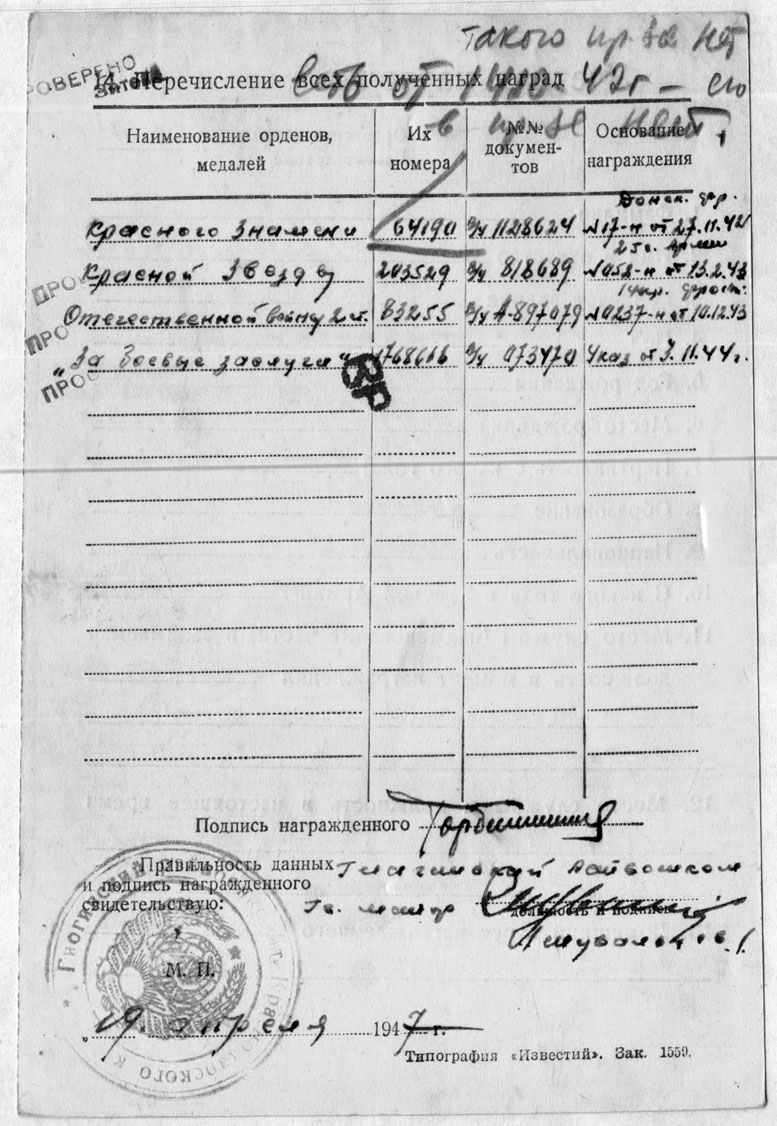 такого пр-за нет
РОВЕРЕНО
14. Перечисление всех полученных наград
есть от 42г. - его
в пр-зе нет,
Наименование орденов, медалей
Их номера
№№ документов
Основание награждения
Донск. фр.
Красного Знамени 64190 б/н 1128624 №17-н от 27.11.42
Красной Звезды 203529 б/н 818689 №052-н от 13.2.43
Отечественной войны 2 ст. 83255 б/н А-897079 №0237-н от 10.12.43
"За боевые заслуги" 1768666 б/н 073470 Указ от 3.11.44г.
ПРО
ПРО
ПРОВ
Подпись награжденного
Правильность данных
и подпись награжденного
свидетельствую:
Гв. майор
должность и подпись
М. П.
Гиагинский Краснодарского к
„19. апреля 1947 г.
Типография «Известий». Зак. 1559.